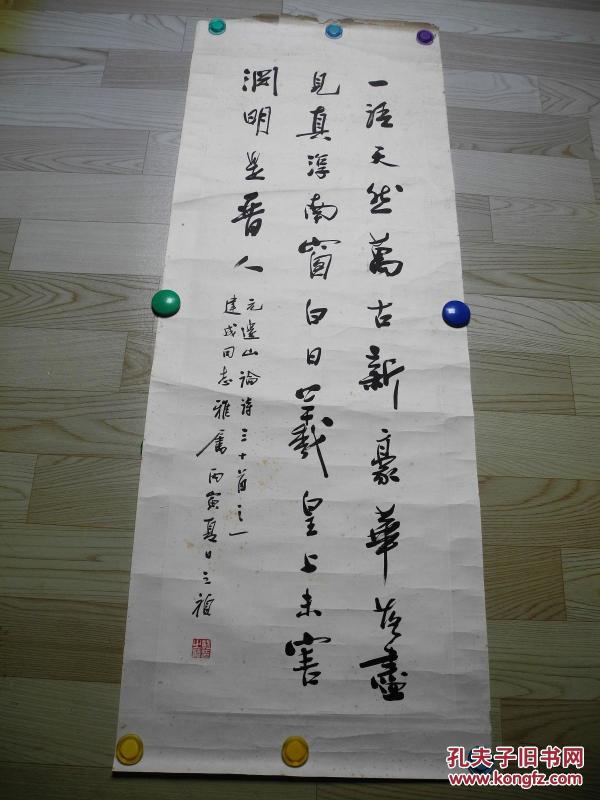 一語天然萬古新豪華落盡
見真淳南窗白日羲皇上未害
淵明是晉人
元遺山論詩三十首之一
建成同志雅屬 丙寅夏日之禎
孔夫子旧书网
www.kongfz.com